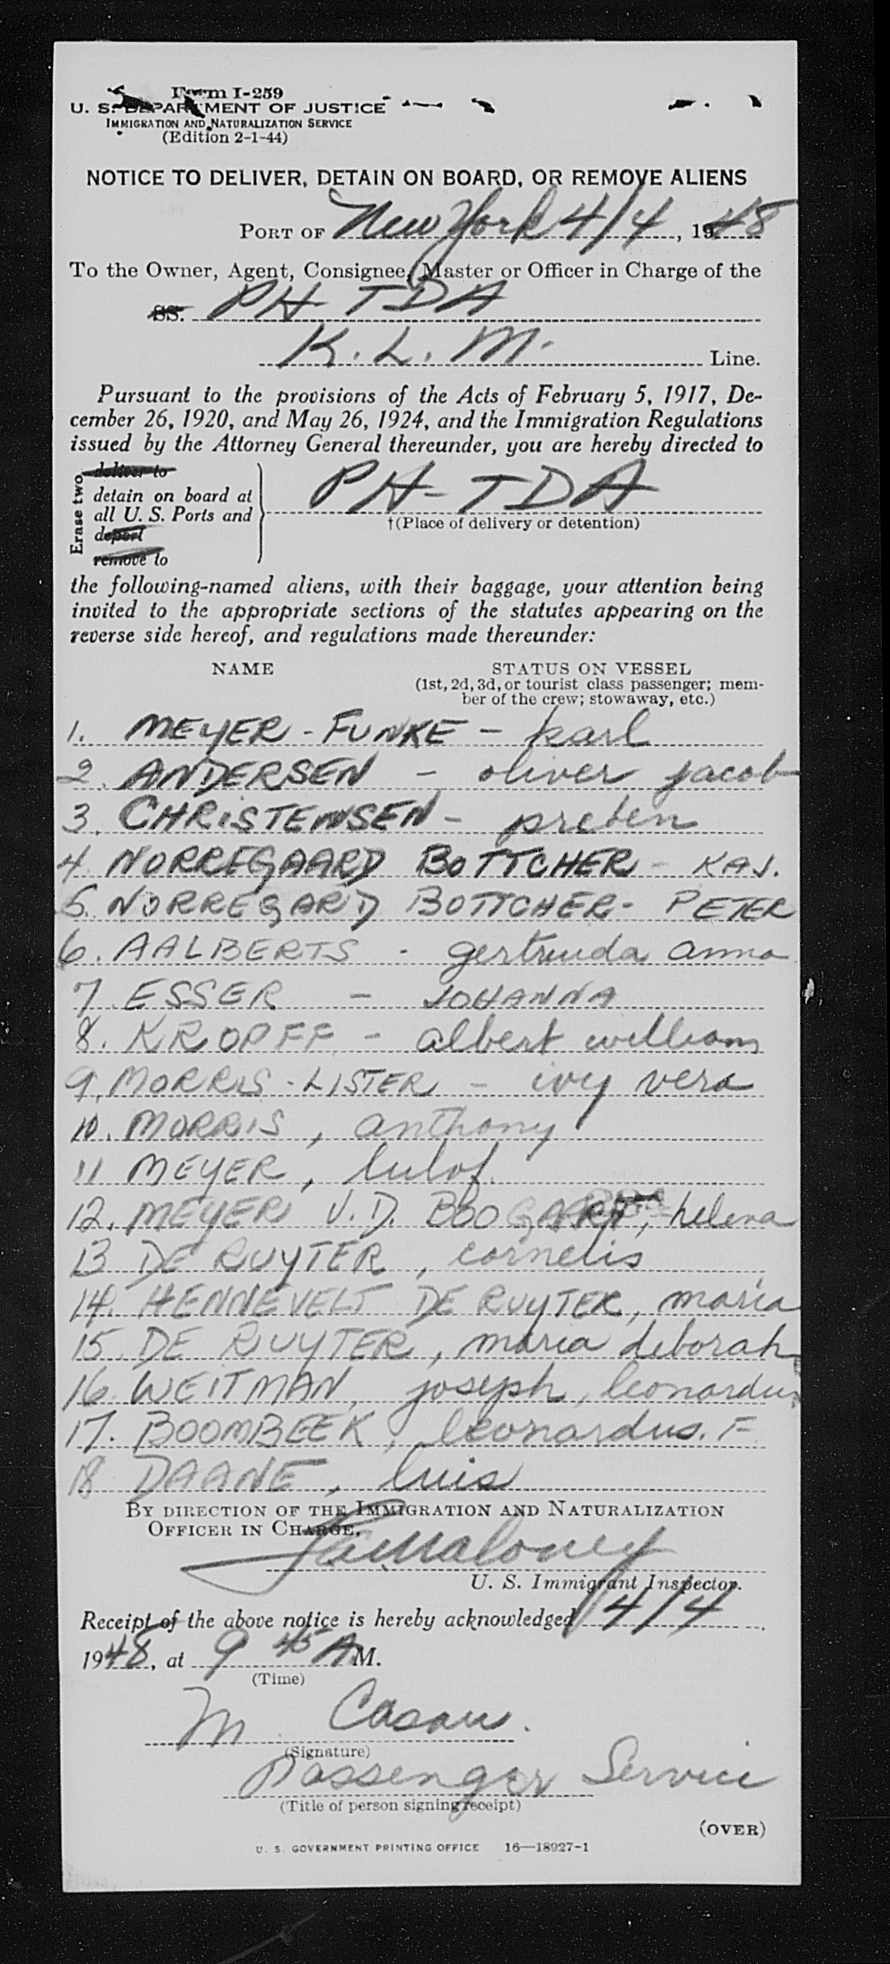 Form I-259
U. S. DEPARTMENT OF JUSTICE
IMMIGRATION AND NATURALIZATION SERVICE
(Edition 2-1-44)
NOTICE TO DELIVER, DETAIN ON BOARD, OR REMOVE ALIENS
PORT OF New York 4/4, 1948
To the Owner, Agent, Consignee, Master or Officer in Charge of the
SS. PH TDA
K.L.M. Line.
Pursuant to the provisions of the Acts of February 5, 1917, De-
cember 26, 1920, and May 26, 1924, and the Immigration Regulations
issued by the Attorney General thereunder, you are hereby directed to
Erase two
deliver to
detain on board at
all U. S. Ports and
deport
remove to
PH-TDA
†(Place of delivery or detention)
the following-named aliens, with their baggage, your attention being
invited to the appropriate sections of the statutes appearing on the
reverse side hereof, and regulations made thereunder:
NAME STATUS ON VESSEL
(1st, 2d, 3d, or tourist class passenger; mem-
ber of the crew; stowaway, etc.)
1. MEYER-FUNKE - karl
2. ANDERSEN - oliver jacob
3. CHRISTENSEN - preben
4. NORREGAARD BOTTCHER - KAJ.
5. NORREGARD BOTTCHER - PETER
6. AALBERTS - gertruida anna
7 ESSER - JOHANNA
8. KROPFF - albert william
9. MORRIS-LISTER - ivy vera
10. MORRIS, anthony
11 MEYER, lulof.
12. MEYER V.D. BOOGAART, helena
13 DE RUYTER, cornelis
14. HENNEVELT DE RUYTER, maria
15. DE RUYTER, maria deborah
16. WEITMAN, joseph, leonardus
17. BOOMBEEK, leonardus. F
18 DAANE, luis
BY DIRECTION OF THE IMMIGRATION AND NATURALIZATION
OFFICER IN CHARGE.
Maloney
U. S. Immigrant Inspector.
Receipt of the above notice is hereby acknowledged 4/4
1948, at 9 45 A M.
(Time)
M Casau.
(Signature)
Passenger Service
(Title of person signing receipt)
(OVER)
U. S. GOVERNMENT PRINTING OFFICE 16—18927-1